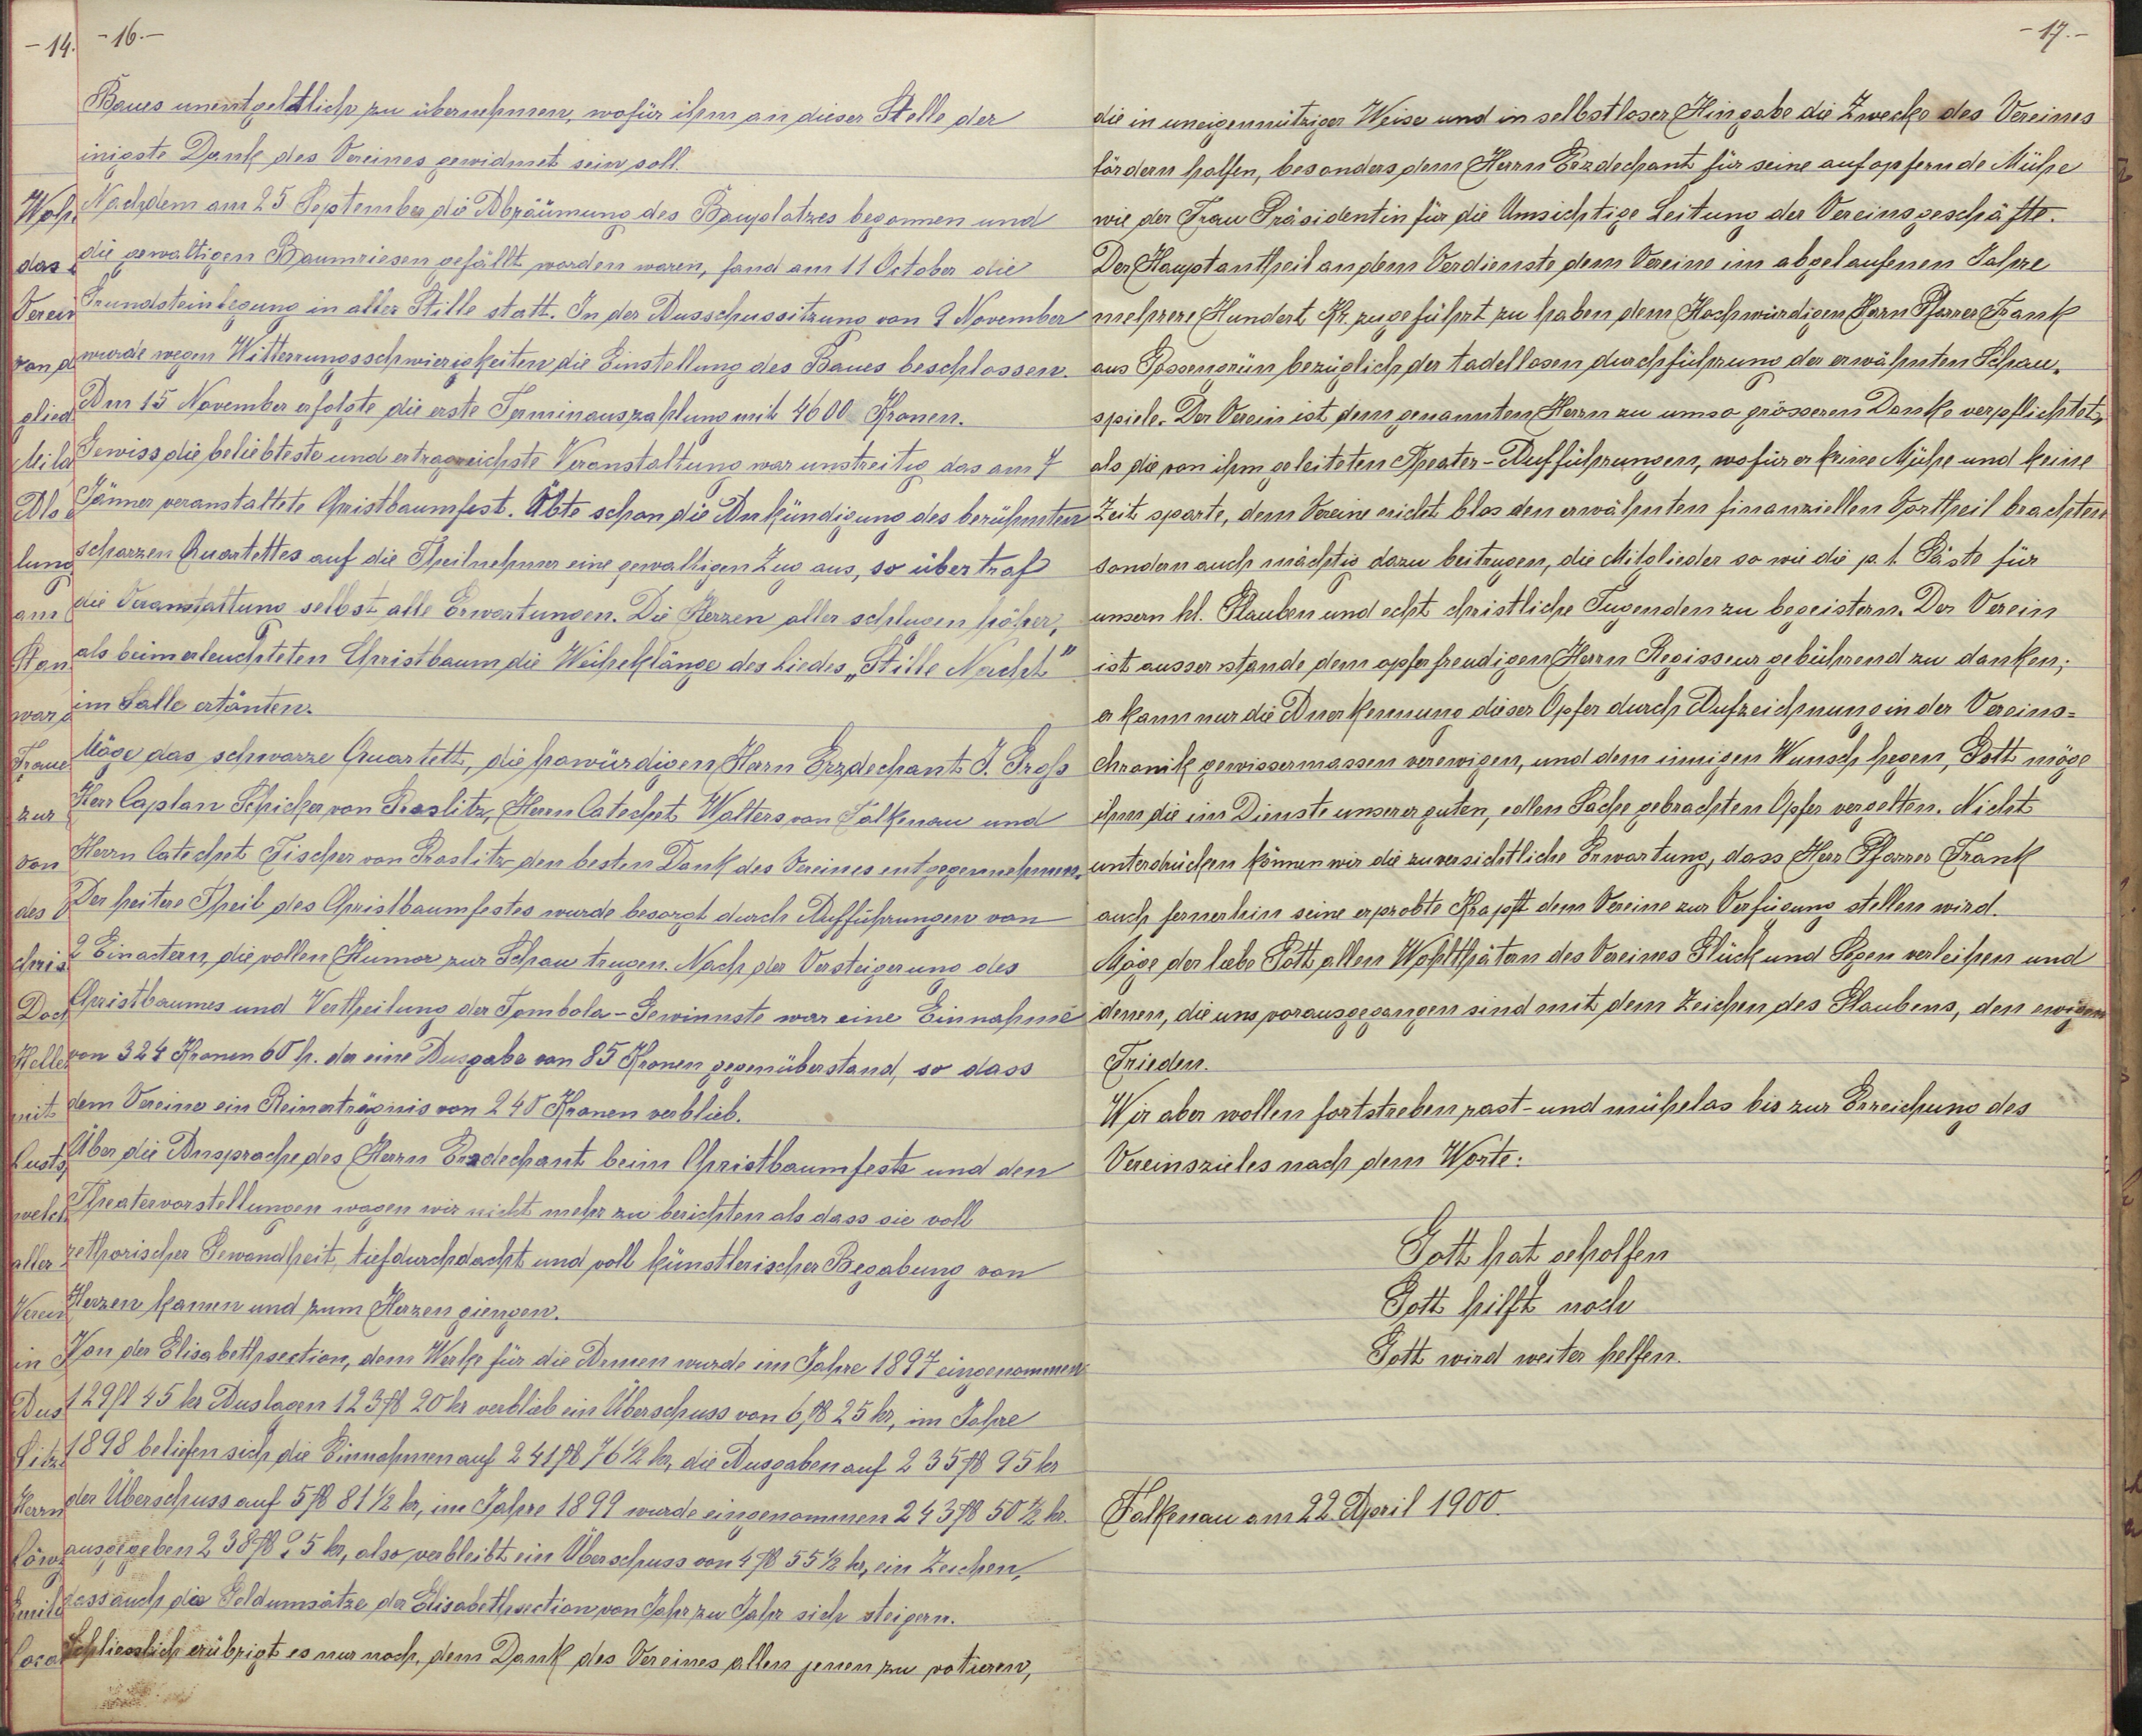 -14.
-16.-
Baues unentgeldtlich zu übernehmen, wofür ihm an dieser Stelle der
inigste Dank des Vereines gewidmet sein soll.
Nachdem am 25 September die Abräumung des Bauplatzes begonnen und
die gewaltigen Baumriesen gefällt worden waren, fand am 11 October die
Grundsteinlegung in aller Stille statt. In der Ausschussitzung von 9 November
wurde wegen Witterrungsschwierigkeiten die Einstellung des Baues beschlossen.
Am 15 November erfolgte die erste Terminauszahlung mit 4600 Kronen.
Gewiss die beliebteste und ertragreichste Veranstaltung war unstreitig das am 7
Jänner veranstaltete Christbaumfest. Übte schon die Ankündigung des berühmten
scharzen Quartettes auf die Theilnehmer eine gewaltigen Zug aus, so übertraf
die Veranstattung selbst alle Erwartungen. Die Herzen aller schlugen höher,
als beim erleuchteten Christbaum die Weiheklänge des Liedes „Stille Nacht"
im Salle ertönten.
Möge das schwarze Quartett, die howürdigen Herrn Erzdechant J. Groß
Herr Caplan Schicker von Graslitz, Herrn Catechet Walters von Falkenau und
Herrn Catechet Fischer von Graslitz den besten Dank des Vereines entgegennehmen.
Der heitere Theil des Christbaumfestes wurde besorgt durch Aufführungen von
2 Einactern, die vollen Humor zur Schau trugen. Nach der Versteigerung des
Christbaumes und Vertheilung der Tombola-Gewinnste war eine Einnahme
von 324 Kronen 60 h. der eine Ausgabe von 85 Kronen gegenüberstand, so dass
dem Vereine ein Reinerträgnis von 240 Kronen verblieb.
Über die Ansprache des Herrn Erzdechant beim Christbaumfeste und den
Theatervorstellungen wagen wir nicht mehr zu berichten als dass sie voll
rethorischer Gewandheit, tiefdurchdacht und voll künstlerischer Begabung von
Herzen kamen und zum Herzen giengen.
Von der Elisabethsection, dem Werke für die Armen wurde im Jahre 1897 eingenommen
129 fl 45 kr Auslagen 123 fl 20 kr verblieb ein Überschuss von 6 fl 25 kr, im Jahre
1898 beliefen sich die Einnahmen auf 241 fl 76 ½ kr, die Ausgaben auf 235 fl 95 kr
der Überschuss auf 5 fl 81 ½ kr, im Jahre 1899 wurde eingenommen 243 fl 50 ½ kr.
ausgegeben 238 fl 95 kr, also verbleibt ein Überschuss von 4 fl 55 ½ kr, ein Zeichen,
dass auch die Geldumsätze der Elisabethsection von Jahr zu Jahr sich steigern.
Schliesslich erübrigt es nur noch, dem Dank des Vereines allen jenen zu votieren,
-17.-
die in uneigennütziger Weise und in selbstloser Hingabe die Zwecke des Vereines
fördern halfen, besonders dem Herrn Erzdechant für seine aufopfernde Mühe
wie der Frau Präsidentin für die Umsichtige Leitung der Vereinsgeschäfte.
Der Hauptantheil an dem Verdienste dem Vereine im abgelaufenen Jahre
mehrere Hundert Kr. zugeführt zu haben dem Hochwürdigen Herrn Pfarrer Frank
aus Gossengrün bezüglich der tadellosen durchführung der erwähnten Schau-
spiele. Der Verein ist dem genannten Herrn zu umso grösseren Danke verpflichtet,
als die von ihm geleiteten Theater-Aufführungen, wofür er keine Mühe und keine
Zeit sparte, dem Vereine nicht blos den erwähnten finanziellen Vortheil brachten
sondern auch mächtig dazu beitrugen, die Mitglieder so wie die p. t. Gäste für
unsern hl. Glauben und echt christliche Tugenden zu begeistern. Der Verein
ist ausser stande dem opferfreudigen Herrn Regisseur gebührend zu danken;
er kann nur die Anerkennung dieser Opfer durch Aufzeichnung in der Vereins=
chronik gewissermassen verewigen, und dem innigen Wunsch hegen, Gott möge
ihm die im Dienste unserer guten, edlen Sache gebrachten Opfer vergelten. Nicht
unterdrücken können wir die zuversichtliche Erwartung, dass Herr Pfarrer Frank
auch fernerhin seine erprobte Krapft dem Vereine zur Verfügung stellen wird.
Möge der liebe Gott allen Wohlthätern des Vereines Glück und Segen verleihen und
denen, die uns vorausgegangen sind mit dem Zeichen des Glaubens, den ewigen
Frieden.
Wir aber wollen fortstreben rast- und mühelos bis zur Erreichung des
Vereinszieles nach dem Worte:
Gott hat geholfen
Gott hilft noch
Gott wird weiter helfen.
Falkenau am 22. April 1900.